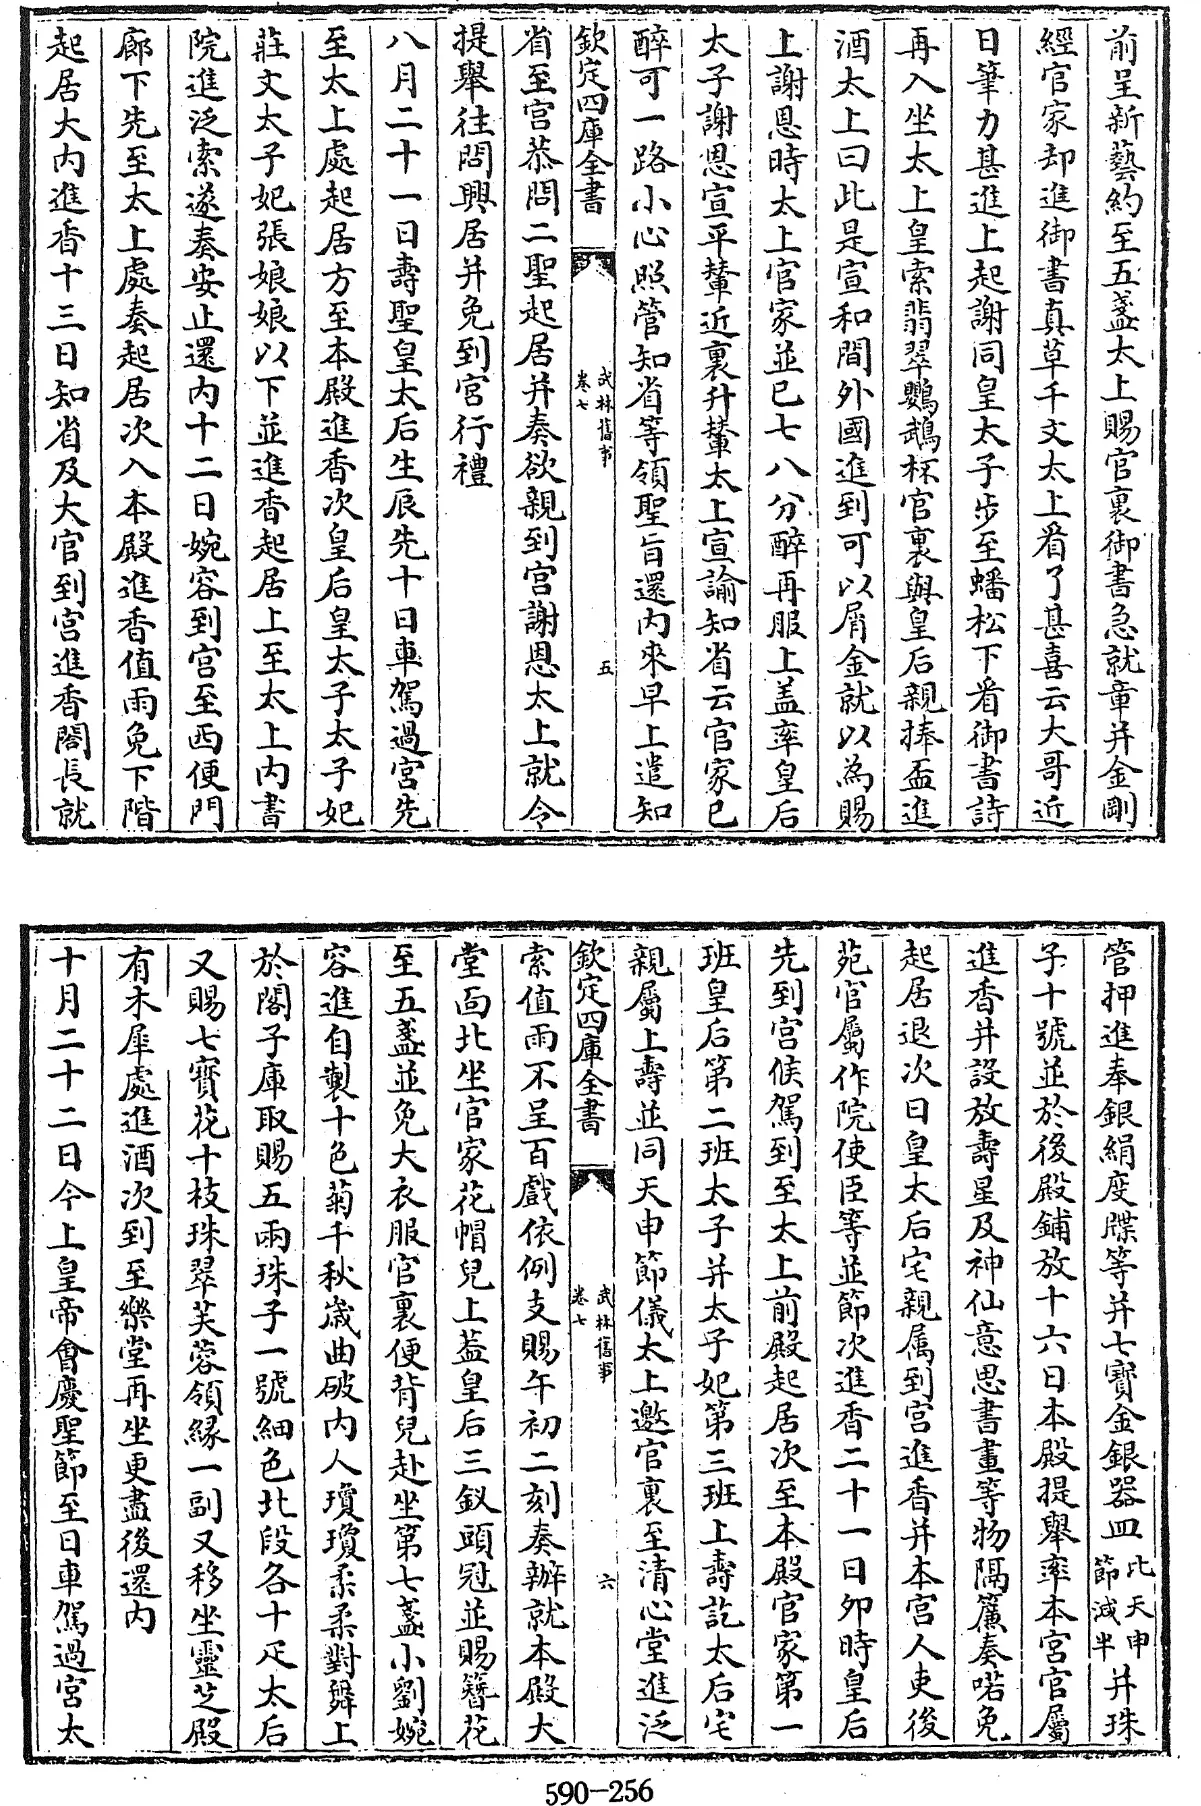 前呈新藝約至五盞太上賜官裏御書急就章并金剛
經官家却進御書真草千文太上看了甚喜云大哥近
日筆力甚進上起謝同皇太子步至蟠松下看御書詩
再入坐太上皇索翡翠鸚鵡杯官裏與皇后親捧盃進
酒太上曰此是宣和間外國進到可以屑金就以為賜
上謝恩時太上官家並已七八分醉再服上盖率皇后
太子謝恩宣平輦近裏升輦太上宣諭知省云官家已
醉可一路小心照管知省等領聖旨還内來早上遣知
欽定四庫全書
武林舊事
卷七
五
省至宮恭問二聖起居并奏欲親到宮謝恩太上就令
提舉往問興居并免到宮行禮
八月二十一日壽聖皇太后生辰先十日車駕過宮先
至太上處起居方至本殿進香次皇后皇太子太子妃
莊文太子妃張娘娘以下並進香起居上至太上内書
院進泛索遂奏安止還内十二日婉容到宮至西便門
廊下先至太上處奏起居次入本殿進香值雨免下階
起居大内進香十三日知省及大官到宮進香閤長就
管押進奉銀絹度牒等并七寳金銀器皿此天申節減半并珠
子十號並於後殿鋪放十六日本殿提舉率本宮官屬
進香并設放壽星及神仙意思書畫等物隔簾奏喏免
起居退次日皇太后宅親属到宮進香并本宮人吏後
苑官屬作院使臣等並節次進香二十一日夘時皇后
先到宮候駕到至太上前殿起居次至本殿官家第一
班皇后第二班太子并太子妃第三班上壽訖太后宅
親屬上壽並同天申節儀太上邀官裏至清心堂進泛
欽定四庫全書
武林舊事
卷七
六
索值雨不呈百戲依例支賜午初二刻奏辦就本殿大
堂面北坐官家花帽兒上葢皇后三釵頭冠並賜簪花
至五盞並免大衣服官裏便背兒赴坐第七盞小劉婉
容進自製十色菊千秋歲曲破内人瓊瓊柔柔對舞上
於閤子庫取賜五兩珠子一號細色北段各十疋太后
又賜七寳花十枝珠翠芙蓉領緣一副又移坐靈芝殿
有木犀處進酒次到至樂堂再坐更盡後還内
十月二十二日今上皇帝會慶聖節至日車駕過宮太
590-256